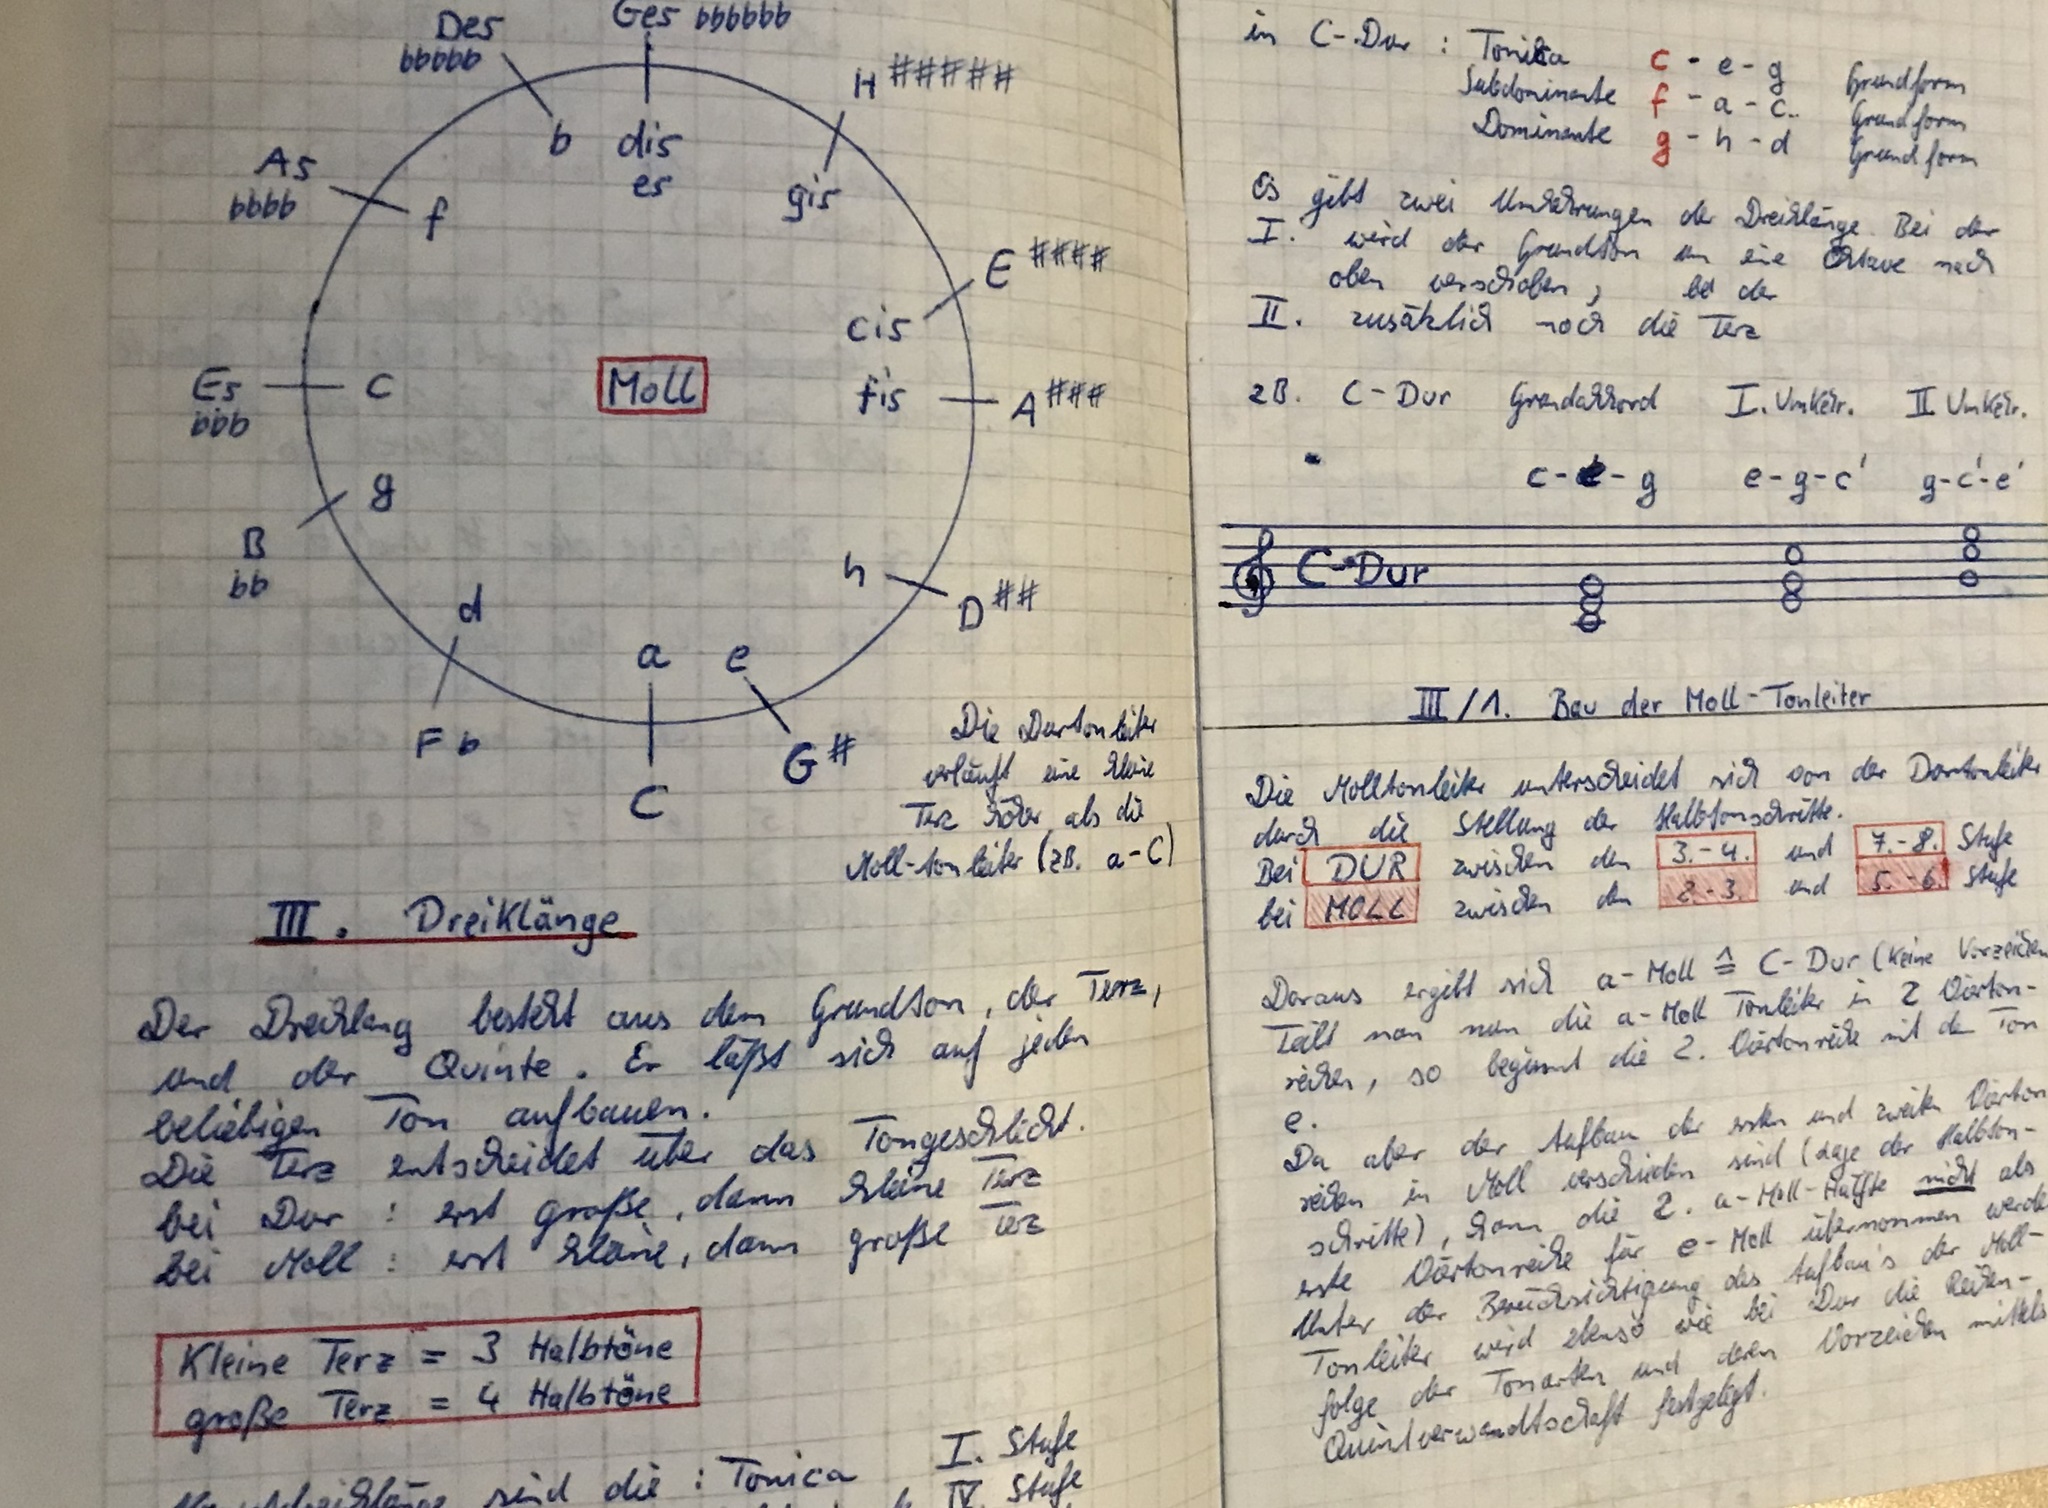 Ges bbbbbb
Des
bbbbb
H #####
b
dis
es
gis
As
bbbb
f
E ####
cis
Es
bbb
c
Moll
fis
A ###
g
B
bb
h
D ##
d
a
e
F b
G #
C
Die Durtonleiter
verläuft eine kleine
Terz höher als die
Moll-tonleiter (zB. a-C)
III. Dreiklänge
Der Dreiklang besteht aus dem Grundton, der Terz,
und der Quinte. Er läßt sich auf jeden
beliebigen Ton aufbauen.
Die Terz entscheidet über das Tongeschlecht.
bei Dur : erst große, dann kleine Terz
bei Moll : erst kleine, dann große Terz
Kleine Terz = 3 Halbtöne
große Terz = 4 Halbtöne
sind die : Tonica I. Stufe
IV. Stufe
in C-Dur : Tonika c - e - g Grundform
Subdominante f - a - c Grundform
Dominante g - h - d Grundform
Es gibt zwei Umkehrungen der Dreiklänge. Bei der
I. wird der Grundton um eine Oktave nach
oben verschoben, bei der
II. zusätzlich noch die Terz
zB. C-Dur Grundakkord I. Umkehr. II Umkehr.
c - e - g e - g - c' g - c' - e'
C-Dur
III/1. Bau der Moll-Tonleiter
Die Molltonleiter unterscheidet sich von der Durtonleiter
durch die Stellung der Halbtonschritte.
Bei DUR zwischen den 3.-4. und 7.-8. Stufe
bei MOLL zwischen den 2-3. und 5.-6. Stufe
Daraus ergibt sich a-Moll ≙ C-Dur (keine Vorzeichen
Teilt man nun die a-Moll Tonleiter in 2 Viərton-
reihen, so beginnt die 2. Viertonreihe mit dem Ton
e.
Da aber der Aufbau der ersten und zweiten Vierton
reihen in Moll verschieden sind (Lage der Halbton-
schritte), kann die 2. a-Moll-Hälfte nicht als
erste Viertonreihe für e-Moll übernommen werde
Unter der Berücksichtigung des Aufbau's der Moll-
Tonleiter wird ebenso wie bei Dur die Reihen-
folge der Tonarten und deren Vorzeichen mittels
Quintverwandtschaft festgelegt.